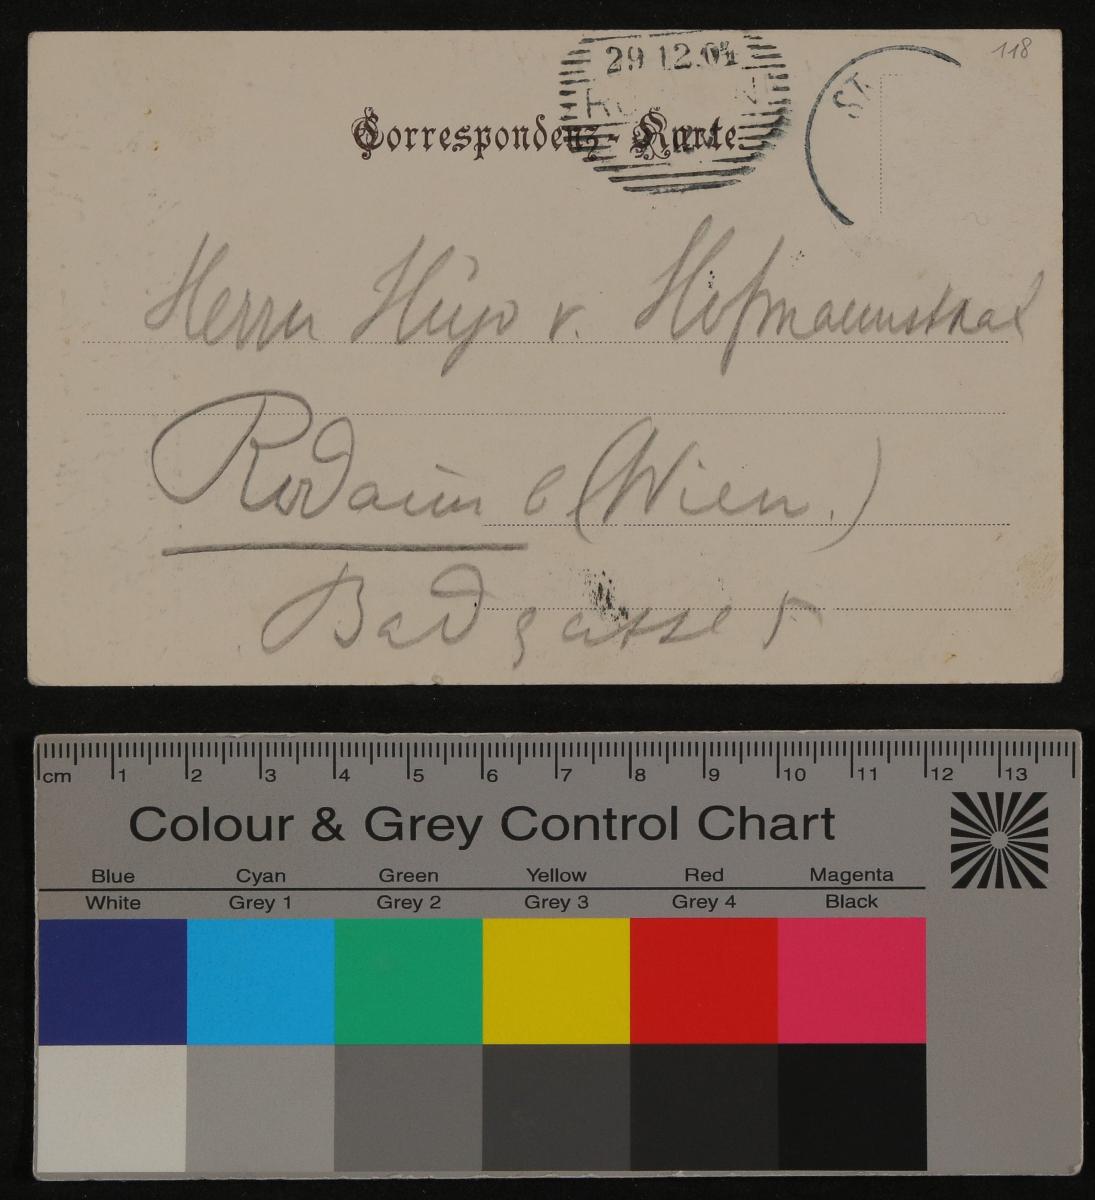 118
29 12.04
ST
Correspondenz-Karte.
Herrn Hugo v. Hofmannsthal
Rodaun b (Wien.)
Badgasse 5
cm 1 2 3 4 5 6 7 8 9 10 11 12 13
Colour & Grey Control Chart
Blue Cyan Green Yellow Red Magenta
White Grey 1 Grey 2 Grey 3 Grey 4 Black